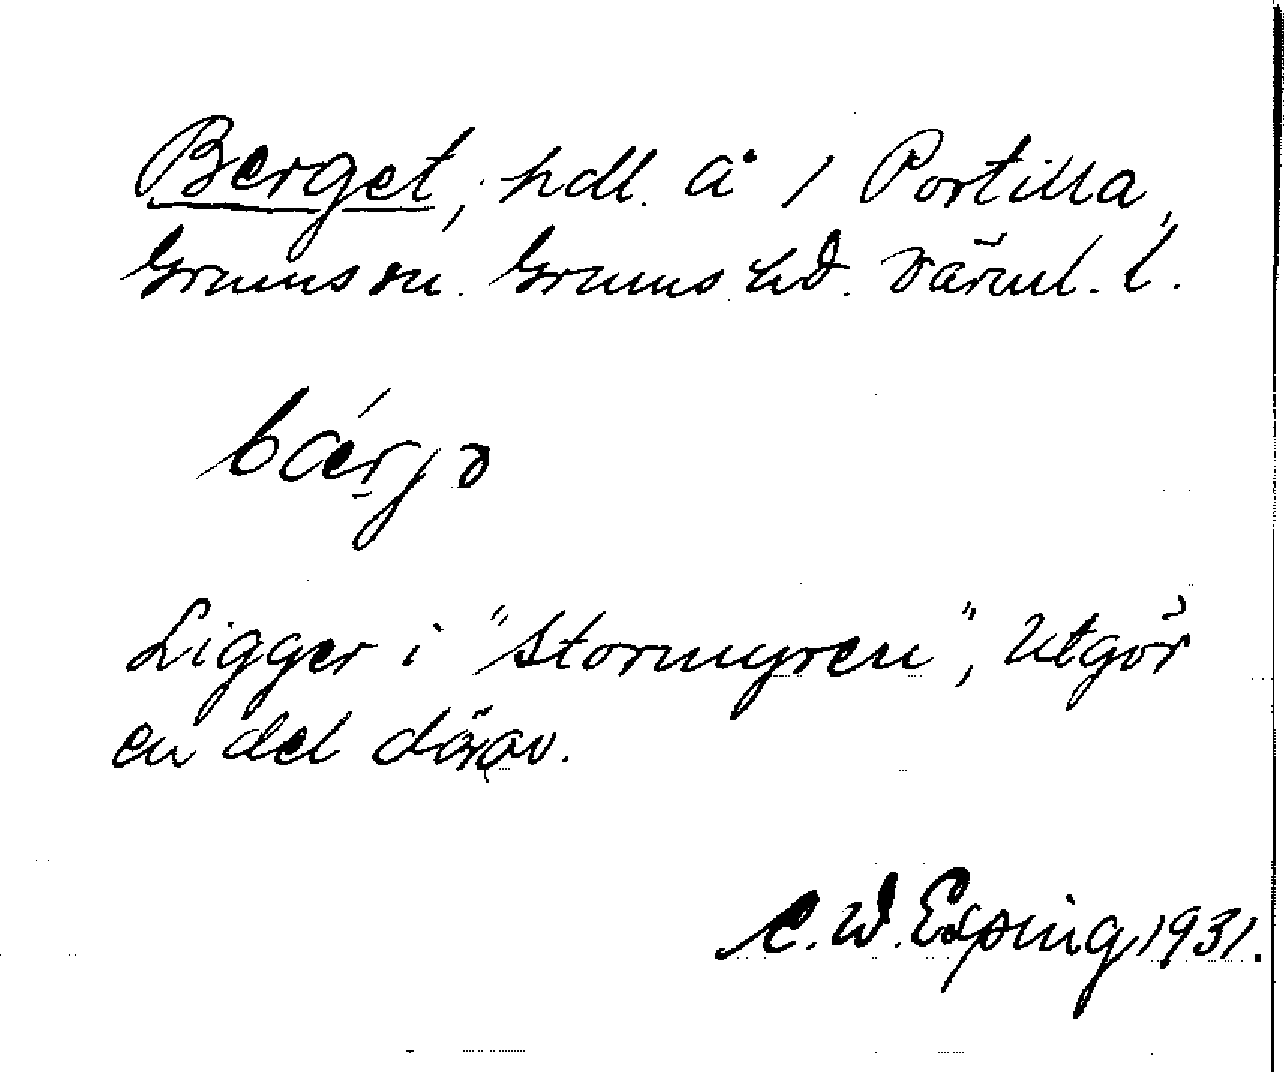 Berget, hdl. å 1 Portilla,
Grums sn. Grums hd. Värml. l.
bǽrjə
Ligger i "Stormyren", Utgör
en del därav.
C. W. Esping 1931.